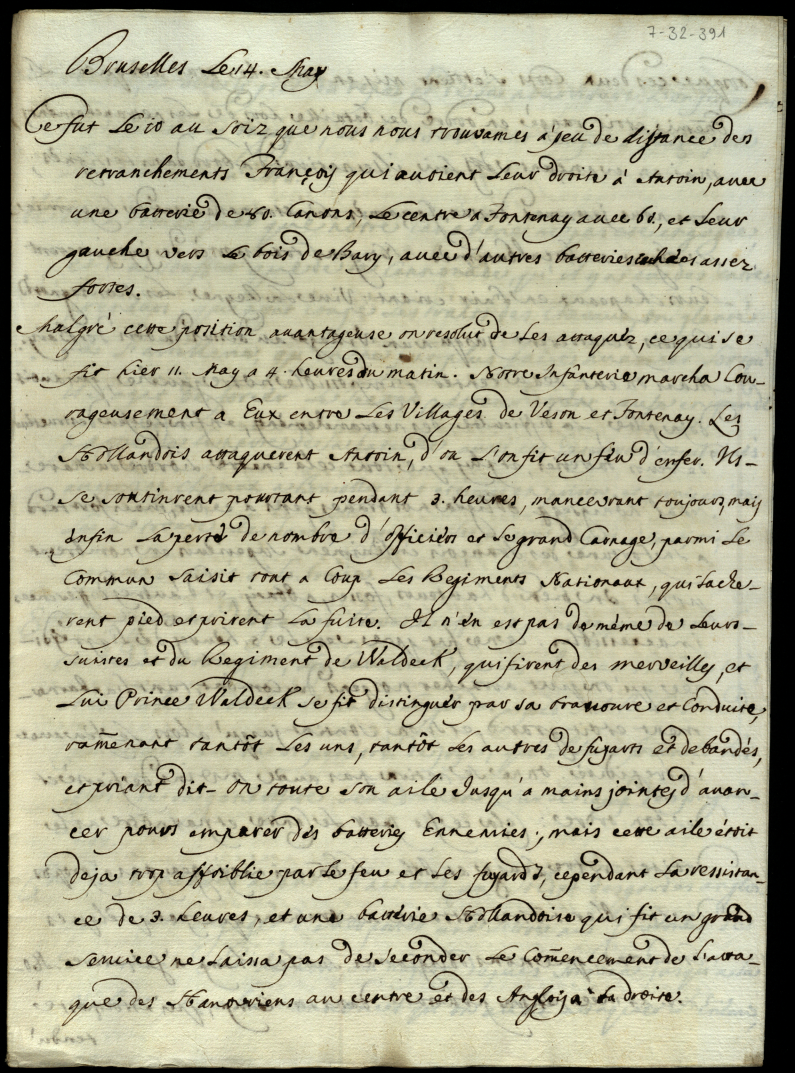 7-32-391
Bruselles Le 14. May
Ce fut Le 10 au Soir que nous nous trouvames a peu de distance des
retranchements François qui avoient Leur droite à Antoin, avec
une batterie de 40. Canons, Le centre a Fontenay avec 60, et Leur
gauche vers Le bois de Bary, avec d'autres batteries assez
fortes.
Malgré cette position avantageuse on resolut de Les attaquér, ce qui se
fit hier 11. May a 4. heures du matin. Notre Infanterie marcha Cou-
rageusement a Eux entre Les Villages de Veson et Fontenay. Les
Hollandois attaquerent Antoin, d'ou L'on fit un feu d'enfer. Ils-
se soutinrent pourtant pendant 3. heures, manœuvrant toujours, mais
énfin La perte de nombre d'officiérs et Le grand Carnage, parmi Le
Commun Saisit tout a Coup Les Regiments Nationaut, qui Lache-
rent pied et prirent La fuite. Il n'én est pas de méme de Leurs-
suisses et du Regiment de Waldeck, qui firent des merveilles, et
Lui Prince Waldeck se fit distinguér par sa bravoure et Conduite,
ram̃enant tantôt Les uns, tantôt Les autres de fugarts et debandés,
et priant dit-on toute son aile Jusqu'a mains jointes d'avan-
cer pour s'emparer dés batteries Ennemies., mais cette aile étoit
deja trop affoiblie par Le feu et Les fugards, cependant La ressistan-
ce de 3. heures, et une batterie Hollandoise qui fit un grand
service ne Laissa pas de Seconder Le Com̃encement de L'atta-
que des Hanovriens au centre et des Anglois a La droite.